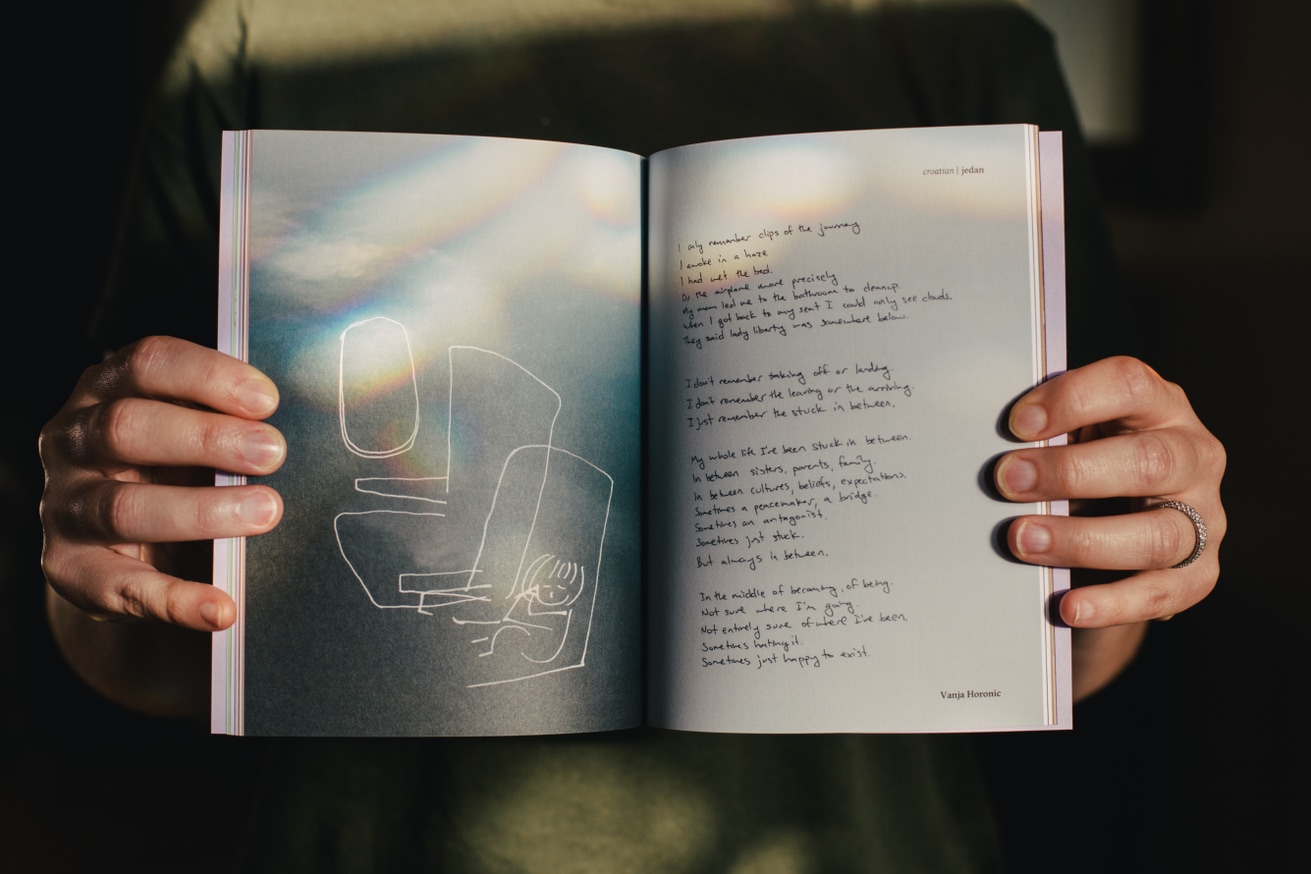 croatian | jedan
I only remember clips of the journey
I awoke in a haze
I had wet the bed.
Or the airplane more precisely
My mom led me to the bathroom to cleanup.
When I got back to my seat I could only see clouds.
They said lady liberty was somewhere below.
I don't remember taking off or landing.
I don't remember the leaving or the arriving.
I just remember the stuck in between.
My whole life I've been stuck in between.
In between sisters, parents, family.
In between cultures, beliefs, expectations.
Sometimes a peacemaker, a bridge.
Sometimes an antagonist.
Sometimes just stuck.
But always in between.
In the middle of becoming, of being.
Not sure where I'm going.
Not entirely sure of where I've been.
Sometimes hating it.
Sometimes just happy to exist.
Vanja Horonic